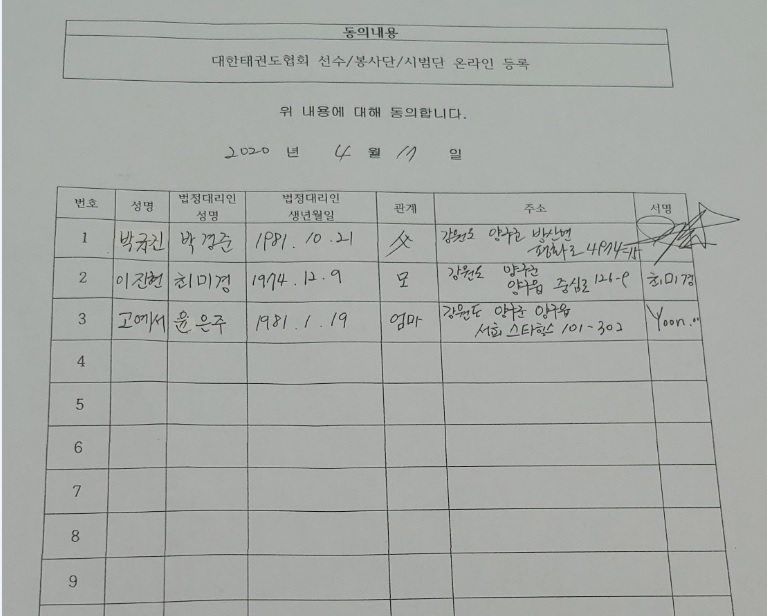 동의내용
대한태권도협회 선수/봉사단/시범단 온라인 등록
위 내용에 대해 동의합니다.
2020 년 4 월 11 일
번호 성명 법정대리인 성명 법정대리인 생년월일 관계 주소 서명
1 박국진 박경준 1981.10.21 父 강원도 양구군 방산면
평화로 4974-15
2 이진헌 최미경 1974.12.9 모 강원도 양구군
양구읍 중심로 126-9 최미경
3 고예서 윤은주 1981.1.19 엄마 강원도 양구군 양구읍
서희스타힐스 101-302 Yoon..
4
5
6
7
8
9